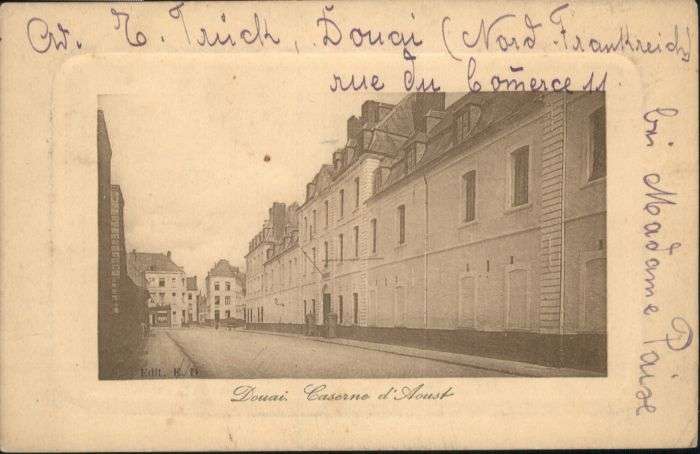 Ad. E. Trück, Douai (Nord. Frankreich)
rue du Comerce 11.
bei Madame Paise
Edit. E. D
Douai. Caserne d'Aoust